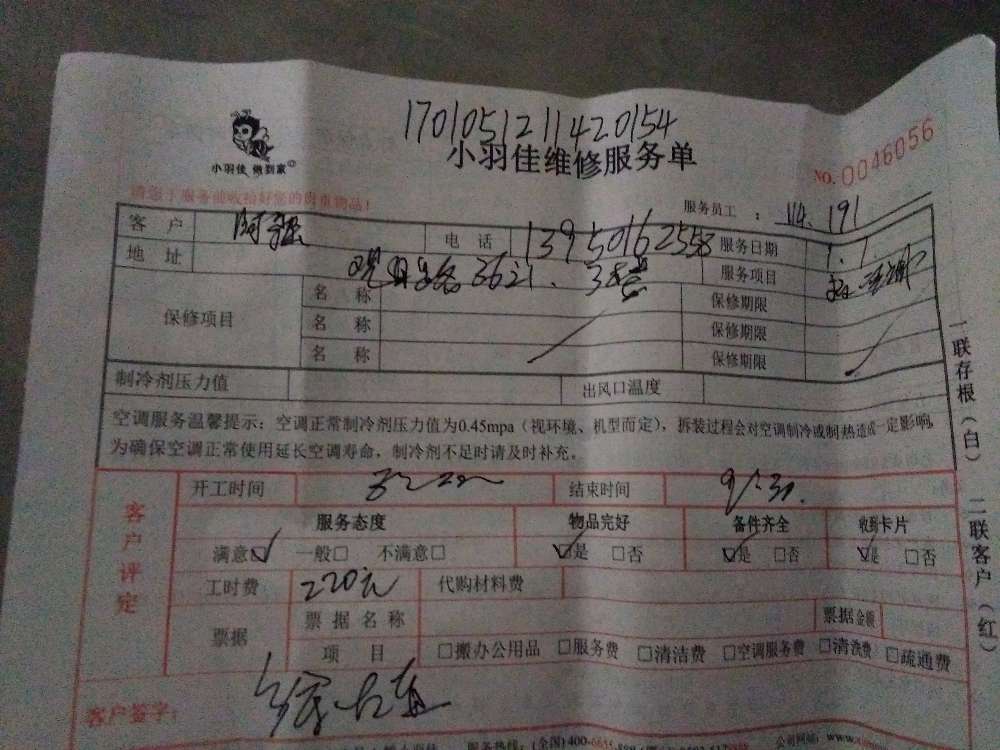 17010512114 20154
小羽佳 做到家
小羽佳维修服务单
NO. 0046056
请您于服务前收拾好您的贵重物品!
服务员工 : 114. 191
客 户 电 话 13950162558 服务日期 1.1
地 址 3621. 服务项目
保修项目 名 称 保修期限
名 称 保修期限
名 称 保修期限
制冷剂压力值 出风口温度
空调服务温馨提示:空调正常制冷剂压力值为0.45mpa(视环境、机型而定),拆装过程会对空调制冷或制热造成一定影响,
为确保空调正常使用延长空调寿命,制冷剂不足时请及时补充。
客户评定
开工时间 结束时间 9:30.
服务态度 物品完好 备件齐全 收到卡片
满意☑ 一般□ 不满意□ ☑是 □否 ☑是 □否 ☑是 □否
工时费 220元 代购材料费
票据 票据名称 票据金额
项 目 □搬办公用品 □服务费 □清洁费 □空调服务费 □清洗费 □疏通费
客户签字:
服务热线:(全国)400- 公司网站:www.
一联存根(白) 二联客户(红)